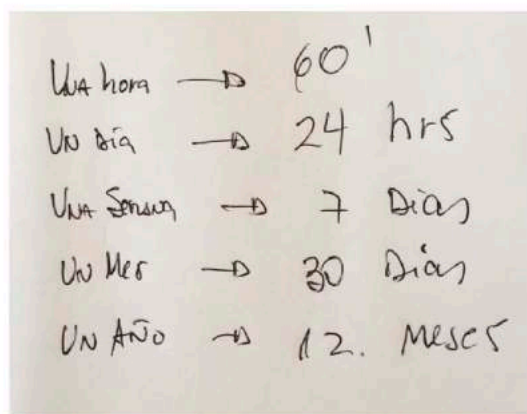 UNA hora → 60'
UN DÍA → 24 hrs
UNA Semana → 7 Días
UN Mes → 30 Días
UN AÑO → 12. Meses